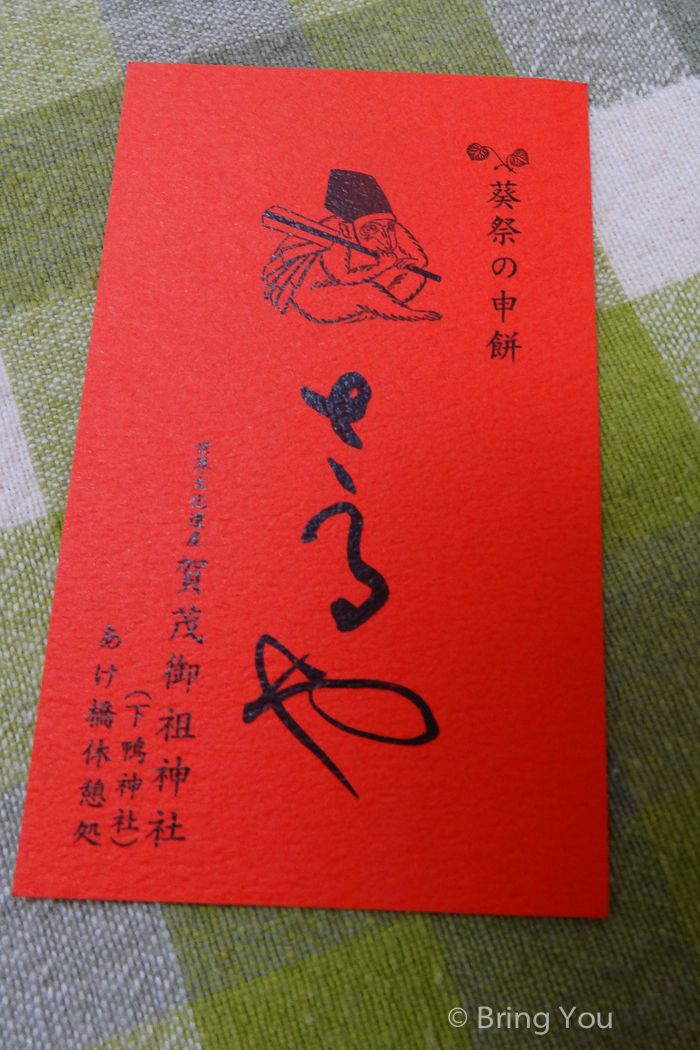 葵祭の申餅
さるや
世界文化遺産 賀茂御祖神社
(下鴨神社)
あけ橋休憩処
© Bring You